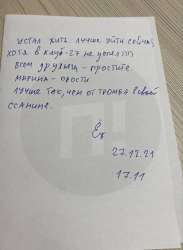 УСТАЛ ЖИТЬ ЛУЧШЕ УЙТИ СЕЙЧАС,
ХОТЯ В КЛУБ-27 НЕ УСПЕЛ)))
ВСЕМ ДРУЗЬЯМ - ПРОСТИТЕ
МАРИНА - ПРОСТИ
ЛУЧШЕ ТАК, ЧЕМ ОТ ТРОМБА В СВОЕЙ
ССАНИНЕ.
27.12.21
17.11